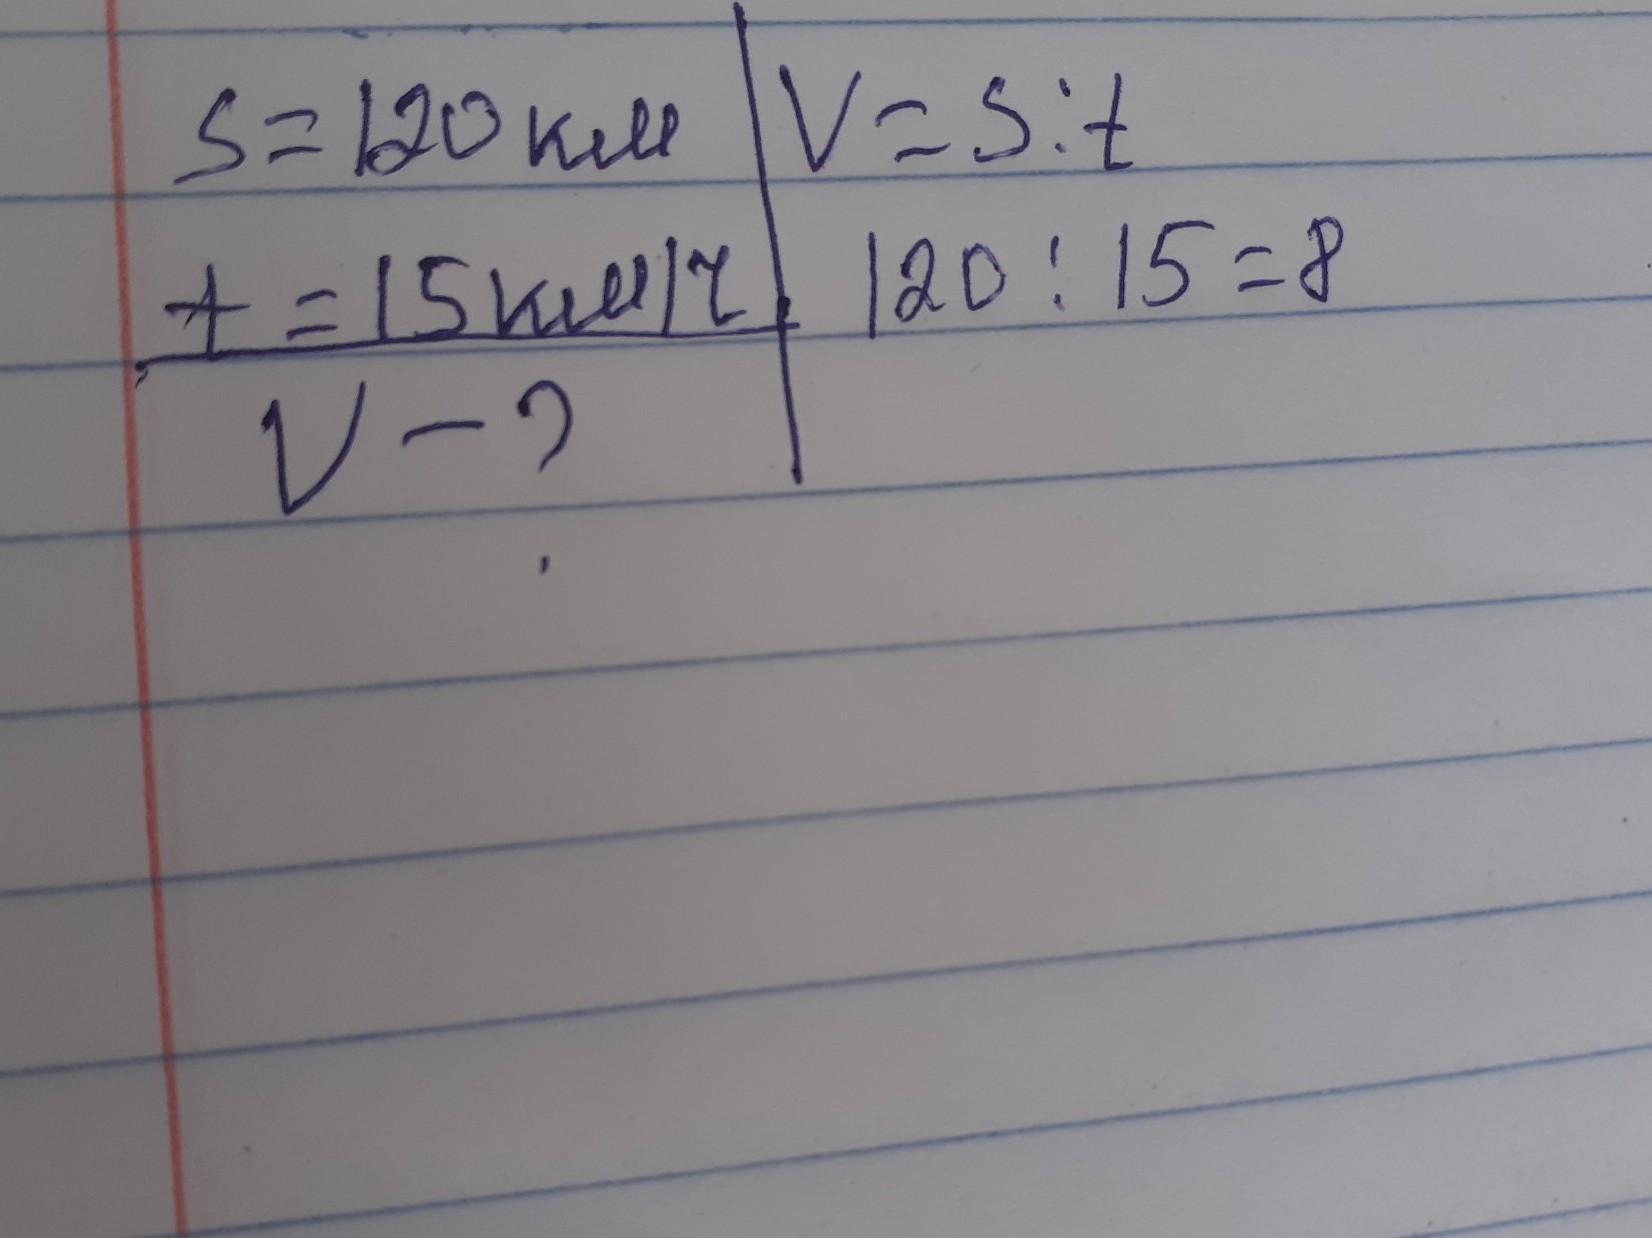 S = 120 км
t = 15 км/ч
V - ?
V = S : t
120 : 15 = 8